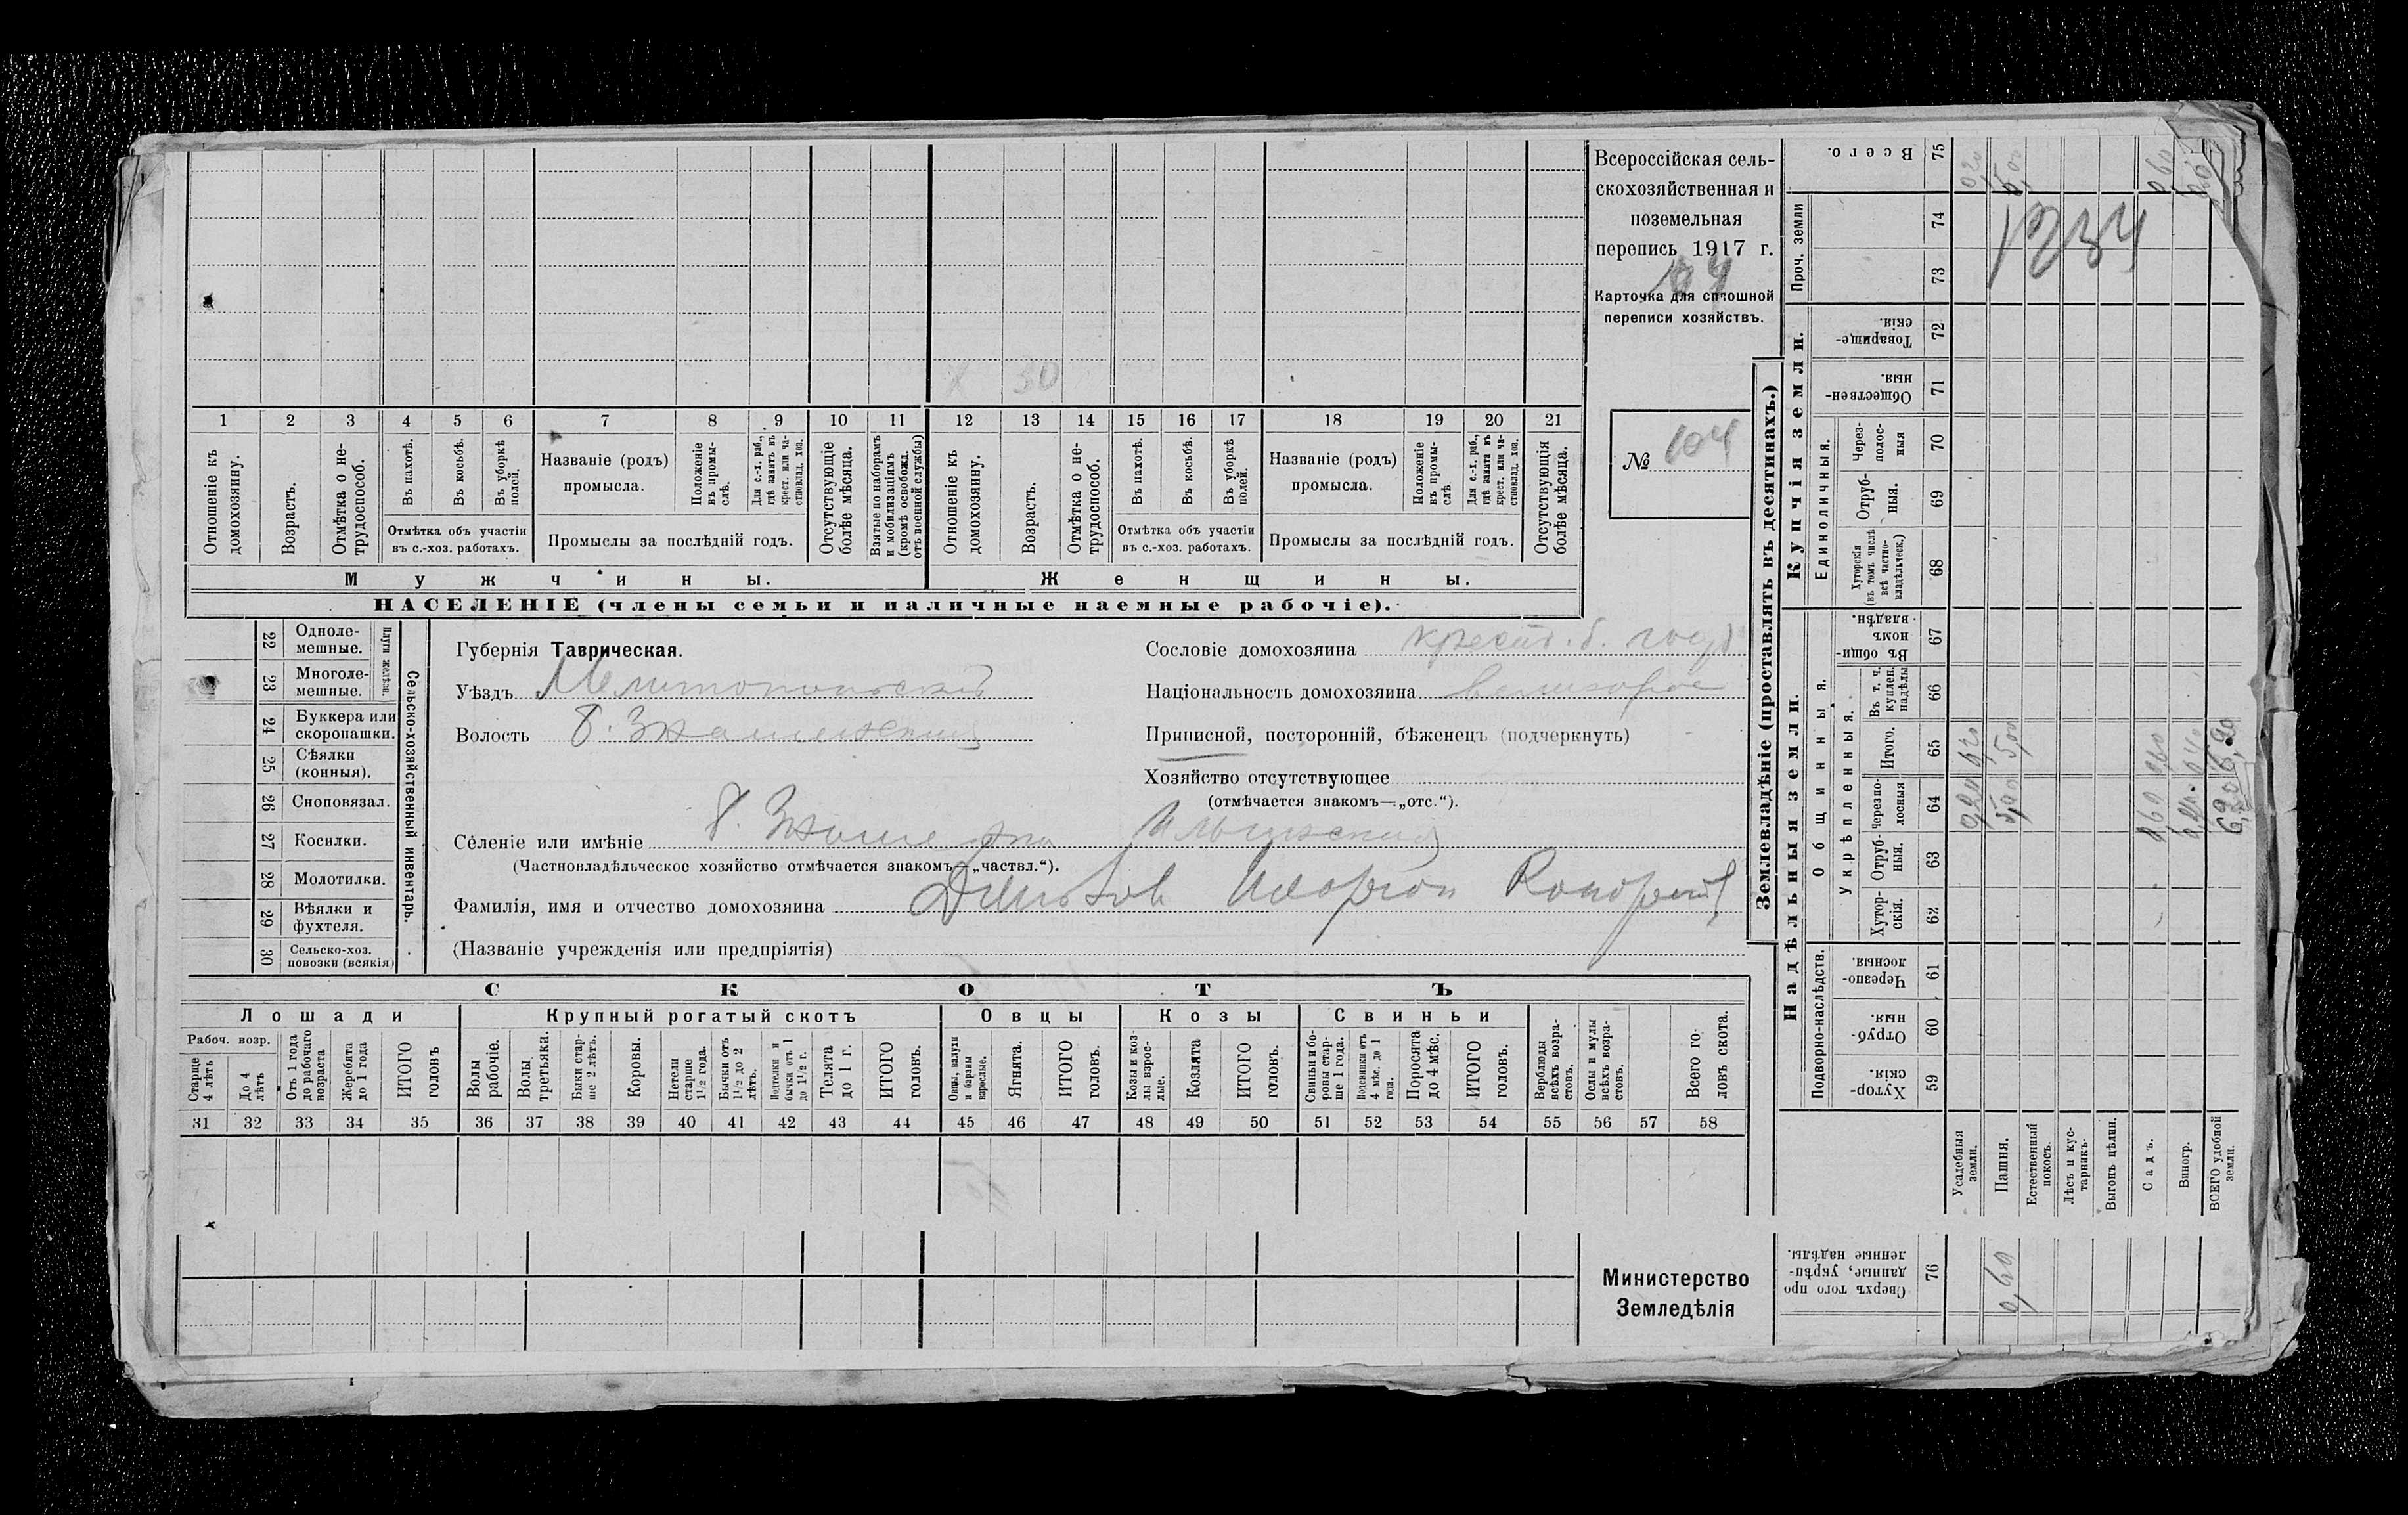 Всероссійская сель-
скохозяйственная и
поземельная
перепись 1917 г.
Карточка для сплошной
переписи хозяйствъ.
№ 104
30
1 2 3 4 5 6 7 8 9 10 11 12 13 14 15 16 17 18 19 20 21
Отношеніе къ домохозяину.
Возрастъ.
Отмѣтка о не-трудоспособ.
Въ пахотѣ.
Въ косьбѣ.
Въ уборкѣ полей.
Отмѣтка объ участіи
въ с.-хоз. работахъ.
Названіе (родъ)
промысла.
Положеніе въ промы-слѣ.
Для с.-х. раб., гдѣ занятъ въ крест. или ча-стновлад. хоз.
Промыслы за послѣдній годъ.
Отсутствующіе болѣе мѣсяца.
Взятые по наборамъ и мобилизаціямъ (кромѣ освобожд. отъ военной службы)
Отношеніе къ домохозяину.
Возрастъ.
Отмѣтка о не-трудоспособ.
Въ пахотѣ.
Въ косьбѣ.
Въ уборкѣ полей.
Отмѣтка объ участіи
въ с.-хоз. работахъ.
Названіе (родъ)
промысла.
Положеніе въ промы-слѣ
Для с.-х. раб., гдѣ занята въ крест. или ча-стновлад. хоз.
Промыслы за послѣдній годъ.
Отсутствующія болѣе мѣсяца.
Мужчины. Женщины.
НАСЕЛЕНІЕ (члены семьи и наличные наемные рабочіе).
22 Одноле-мешные.
23 Многоле-мешные.
Плуги желѣзн.
24 Буккера или скоропашки.
25 Сѣялки (конныя).
26 Сноповязал.
27 Косилки.
28 Молотилки.
29 Вѣялки и фухтеля.
30 Сельско-хоз. повозки (всякія)
Сельско-хозяйственный инвентарь.
Губернія Таврическая.
Уѣздъ Мелитопольскій
Волость Б. Знаменская
Сословіе домохозяина крест. б. госуд
Національность домохозяина великорос
Приписной, посторонній, бѣженецъ (подчеркнуть)
Хозяйство отсутствующее
(отмѣчается знакомъ—„отс.“).
Селеніе или имѣніе Б. Знаменка Ильинская
(Частновладѣльческое хозяйство отмѣчается знакомъ—„частвл.“).
Фамилія, имя и отчество домохозяина
(Названіе учрежденія или предпріятія)
СКОТЪ
Лошади Крупный рогатый скотъ Овцы Козы Свиньи
Рабоч. возр.
Старше 4 лѣтъ
До 4 лѣтъ
Отъ 1 года до рабочаго возраста
Жеребята до 1 года
ИТОГО головъ
Волы рабочіе.
Волы третьяки.
Быки стар-ше 2 лѣтъ.
Коровы.
Нетели старше 1½ года.
Бычки отъ 1½ до 2 лѣтъ.
Подтелки и бычки отъ 1 до 1½ г.
Телята до 1 г.
ИТОГО головъ.
Овцы, валухи и бараны взрослые.
Ягнята.
ИТОГО головъ.
Козы и коз-лы взрос-лые.
Козлята
ИТОГО головъ.
Свиньи и бо-ровы стар-ше 1 года.
Подсвинки отъ 4 мѣс. до 1 года.
Поросята до 4 мѣс.
ИТОГО головъ.
Верблюды всѣхъ возра-стовъ.
Ослы и мулы всѣхъ возра-стовъ.
Всего го-ловъ скота.
31 32 33 34 35 36 37 38 39 40 41 42 43 44 45 46 47 48 49 50 51 52 53 54 55 56 57 58
Министерство
Земледѣлія
Землевладѣніе (проставлять въ десятинахъ.)
Надѣльныя земли. Купчія земли. Проч. земли
Подворно-наслѣдств.
Общинныя.
Укрѣпленныя.
Единоличныя.
Хутор-скія. 59
Отруб-ныя. 60
Черезпо-лосныя. 61
Хутор-скія. 62
Отруб-ныя. 63
Черезпо-лосныя 64
Итого. 65
Въ т. ч. куплен. надѣлы 66
Въ общин-номъ владѣн. 67
Хуторскія (въ томъ числѣ всѣ частно-владѣльческ.) 68
Отруб-ныя. 69
Черезполос-ныя 70
Общественныя. 71
Товарище-скія. 72
73
74
Всего. 75
Сверхъ того про-данные, укрѣп-ленные надѣлы. 76
Усадебныя земли. 0,20 0,20 0,20
Пашня. 5,00 5,00 5,00
Естественный покосъ.
Лѣсъ и кус-тарникъ.
Выгонъ цѣлин.
Садъ. 0,60
Виногр.
ВСЕГО удобной земли. 6,20
1234